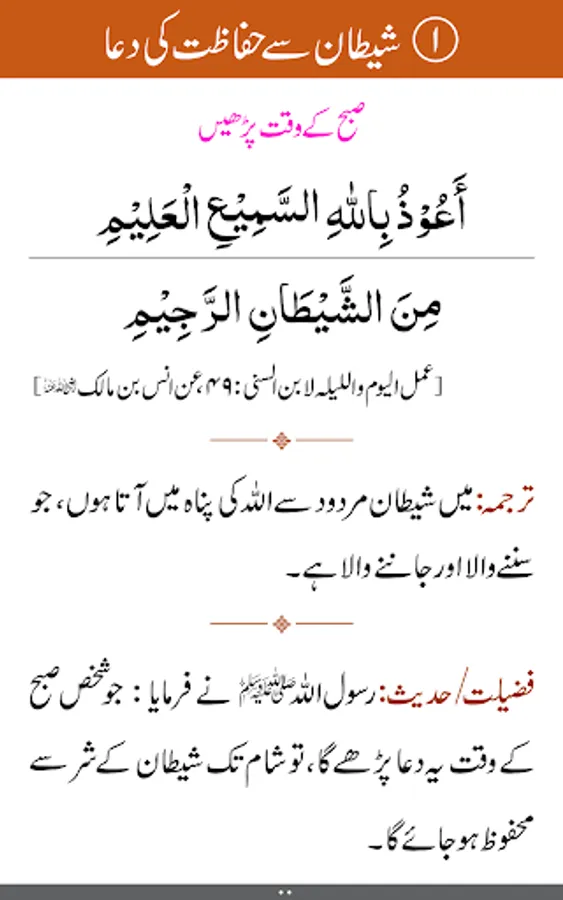 ۱ شیطان سے حفاظت کی دعا
صبح کے وقت پڑھیں
أَعُوْذُ بِاللهِ السَّمِيْعِ الْعَلِيْمِ
مِنَ الشَّيْطَانِ الرَّجِيْمِ
[عمل الیوم واللیلہ لابن السنی: ۴۹، عن انس بن مالکؓ]
ترجمہ: میں شیطان مردود سے اللہ کی پناہ میں آتا ہوں، جو
سننے والا اور جاننے والا ہے۔
فضیلت/حدیث: رسول اللہ ﷺ نے فرمایا: جو شخص صبح
کے وقت یہ دعا پڑھے گا، تو شام تک شیطان کے شر سے
محفوظ ہو جائے گا۔